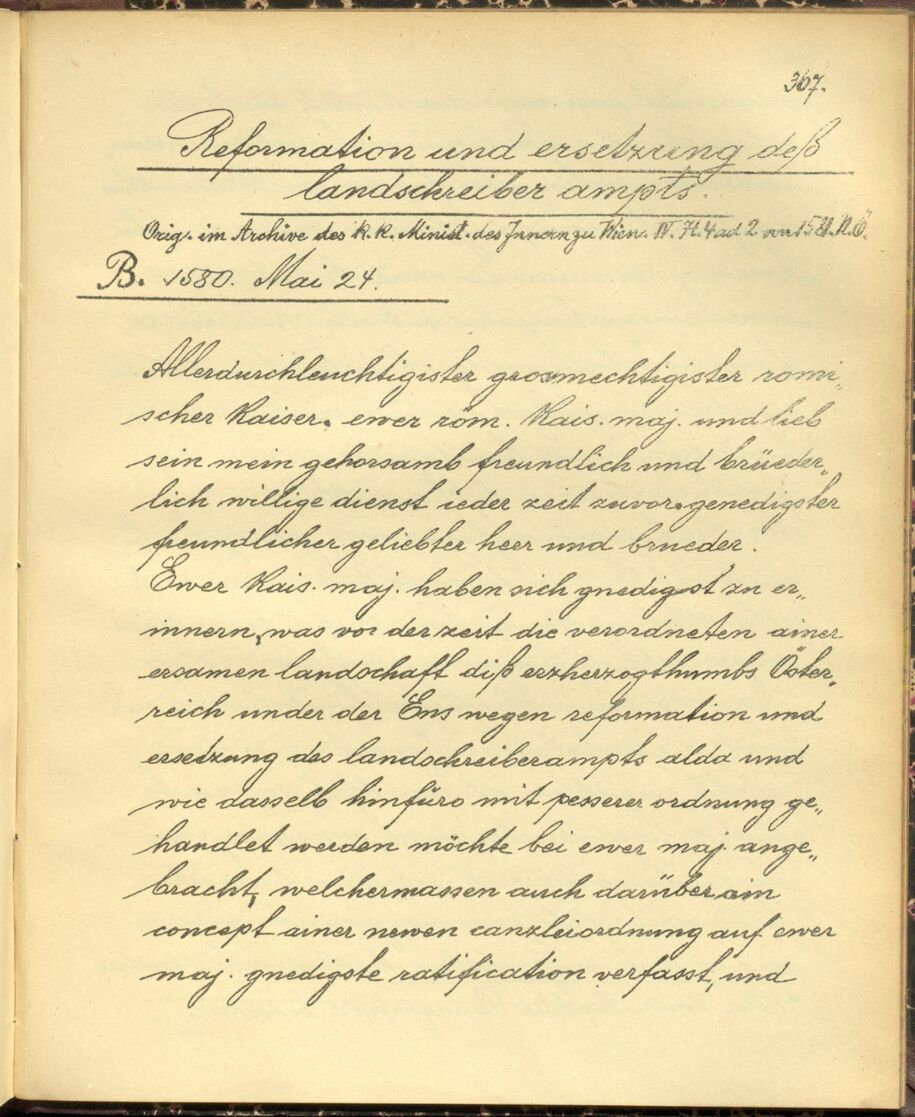 367.
Reformation und ersetzung deß
landschreiber ampts.
Orig. im Archive des k. k. Minist. des Innern zu Wien. IV. H. 4 ad 2 N.Ö.
B. 1580. Mai 24.
Allerdurchleuchtigister grosmechtigister romi„
scher Kaiser. ewer röm. Kais. maj. und lieb
sein mein gehorsamb freundlich und brüeder„
lich willige dienst ieder zeit zuvor. genedigster
freundlicher geliebter heer und brueder.
Ewer Kais. maj. haben sich gnedigst zu er„
innern, was vor der zeit die verordneten ainer
ersamen landschaft diß erzherzogthumbs Öster„
reich under der Ens wegen reformation und
ersetzung des landschreiberampts alda und
wie dasselb hinfüro mit pesserer ordnung ge„
handlet werden möchte bei ewer maj. ange„
bracht, welchermassen auch darüber ain
concept ainer newen canzleiordnung auf ewer
maj. gnedigste ratification verfasst, und